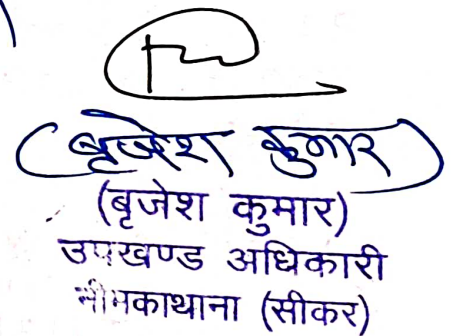 (बृजेश कुमार)
(बृजेश कुमार)
उपखण्ड अधिकारी
नीमकाथाना (सीकर)